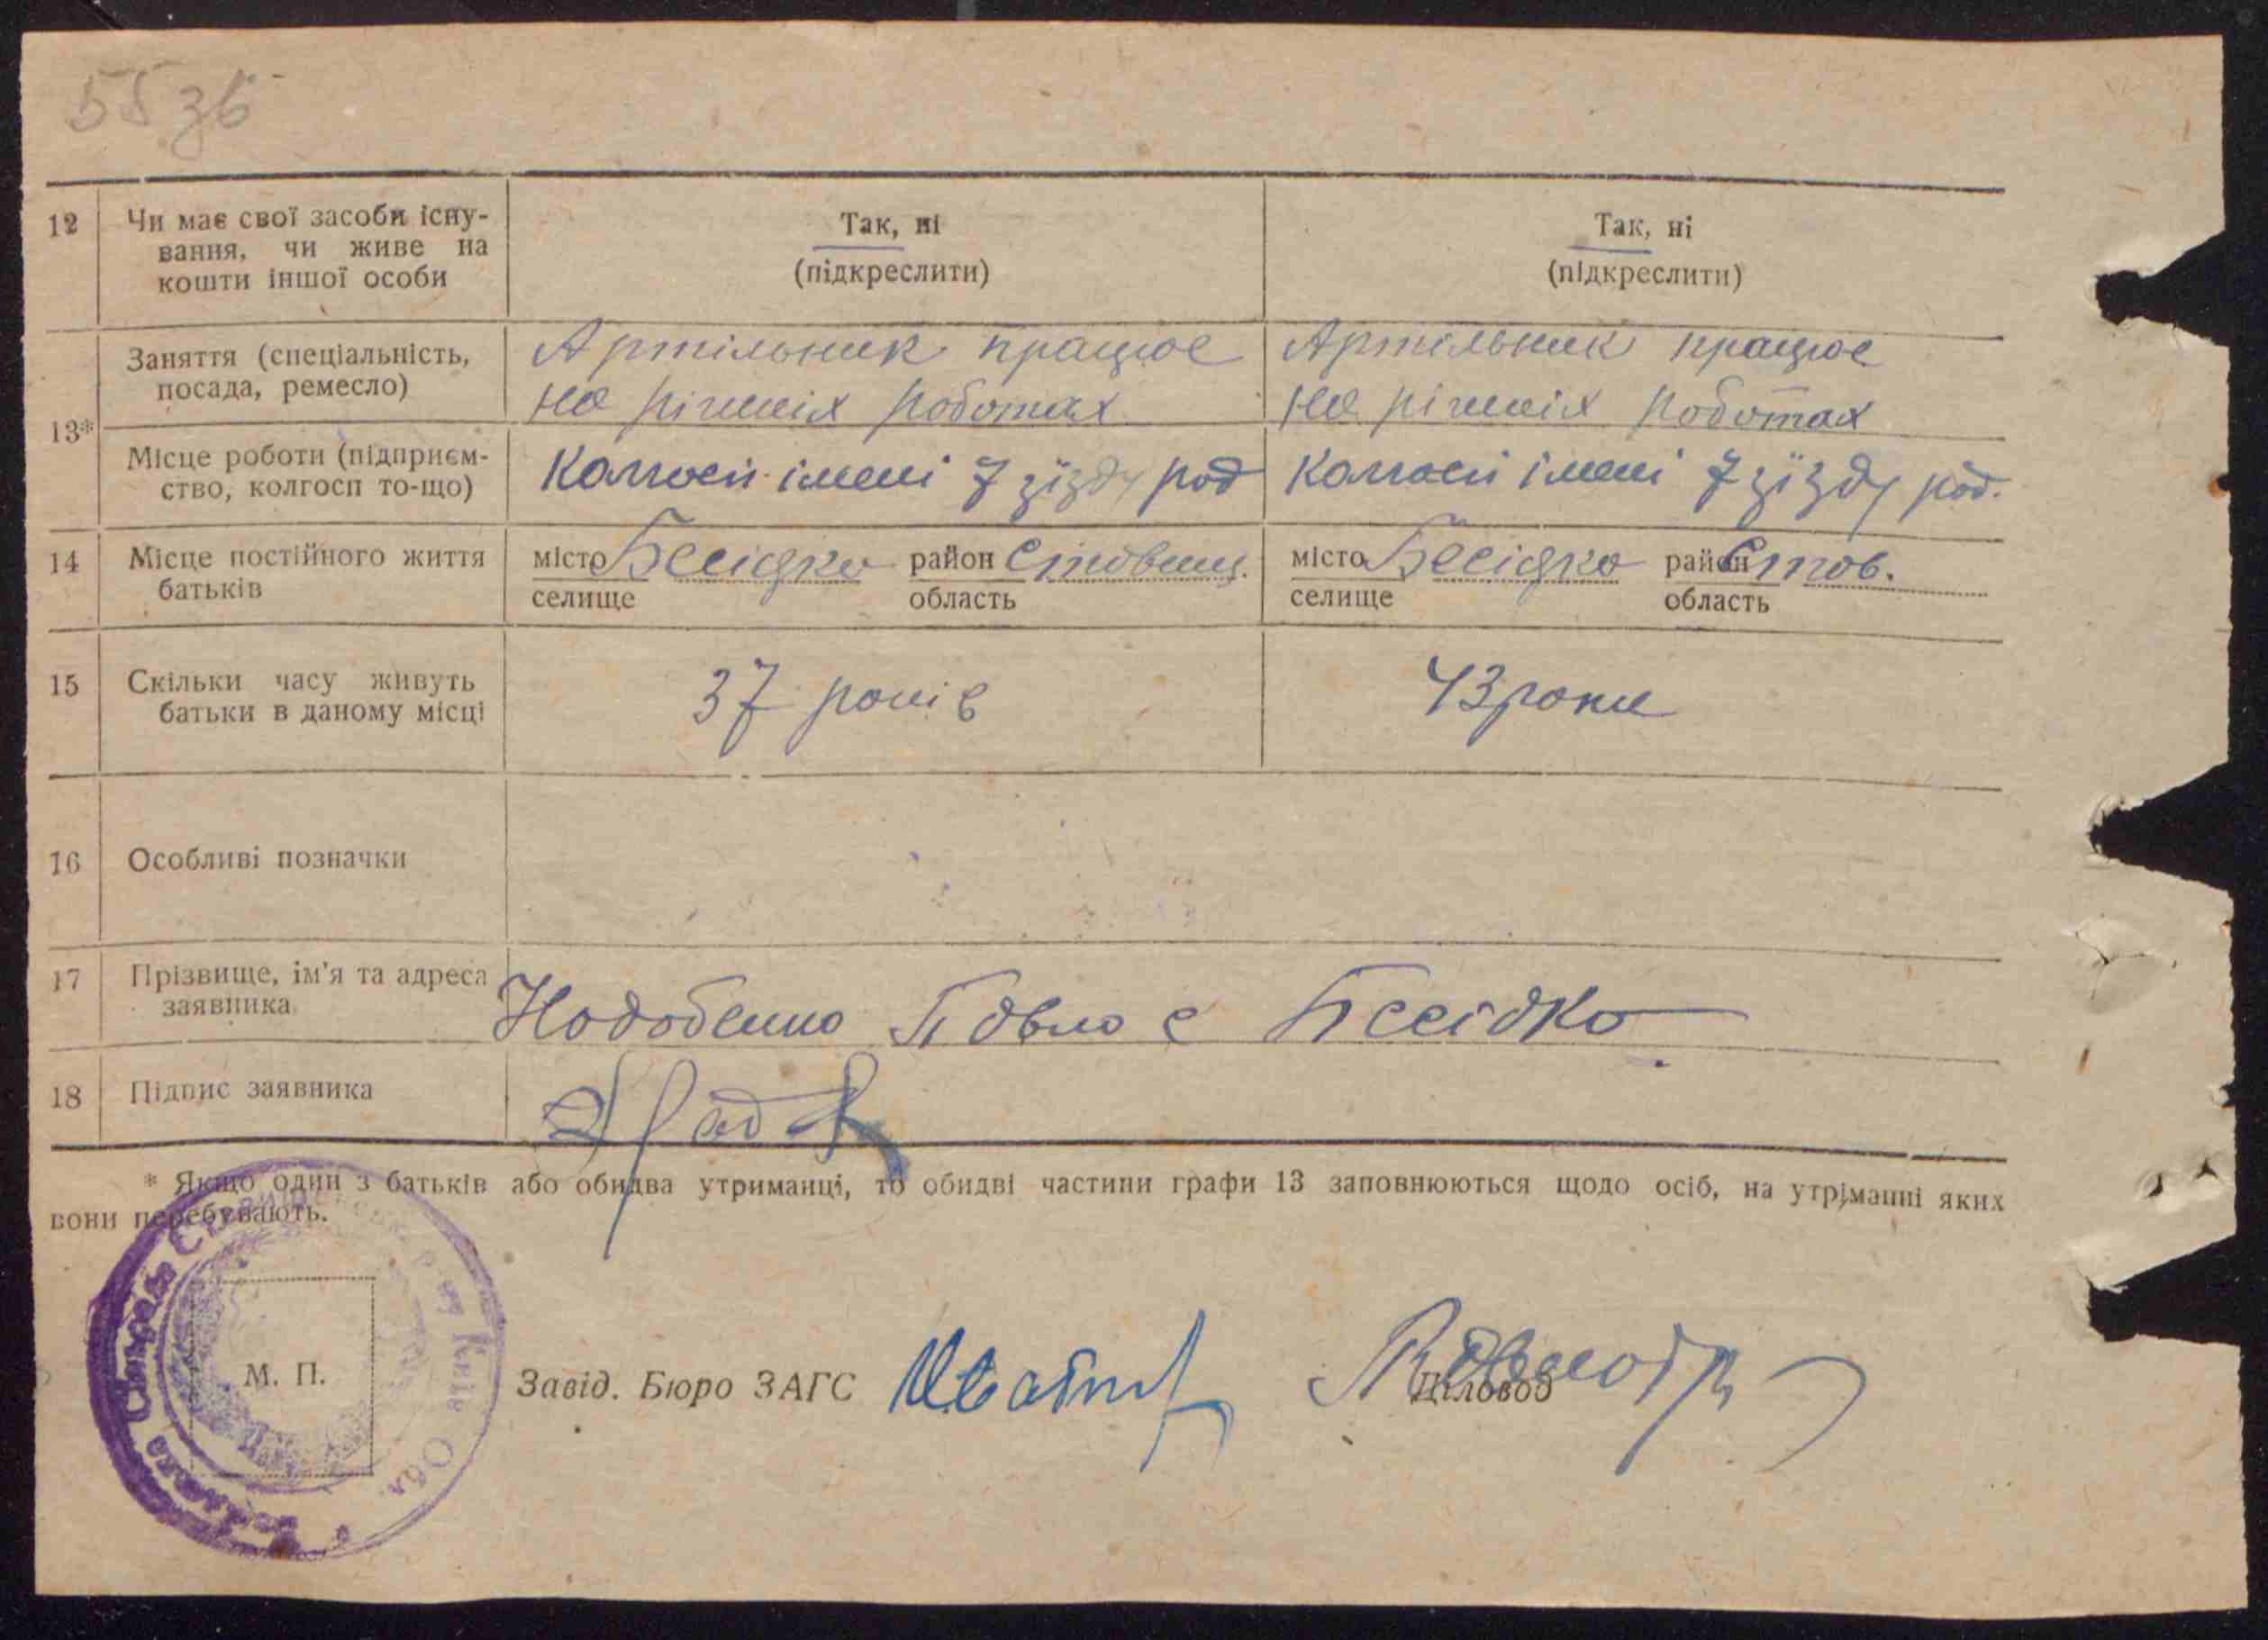 55 зв
12 Чи має свої засоби існу-
вання, чи живе на
кошти іншої особи
Так, ні
(підкреслити)
Так, ні
(підкреслити)
13*
Заняття (спеціальність,
посада, ремесло)
Артільник працює
на різних роботах
Артільник працює
на різних роботах
Місце роботи (підприєм-
ство, колгосп то-що)
Колгосп імені 7 зїзду рад
Колгосп імені 7 зїзду рад.
14 Місце постійного життя
батьків
місто Бесідка район Ставищ.
селище область
місто Бесідка район Став.
селище область
15 Скільки часу живуть
батьки в даному місці
37 років
43 роки
16 Особливі позначки
17 Прізвище, ім'я та адреса
заявника
Павло с Бесідка
18 Підпис заявника
* Якщо один з батьків або обидва утриманці, то обидві частини графи 13 заповнюються щодо осіб, на утриманні яких
вони перебувають.
Київ Обл.
М. П.
Завід. Бюро ЗАГС
Діловод